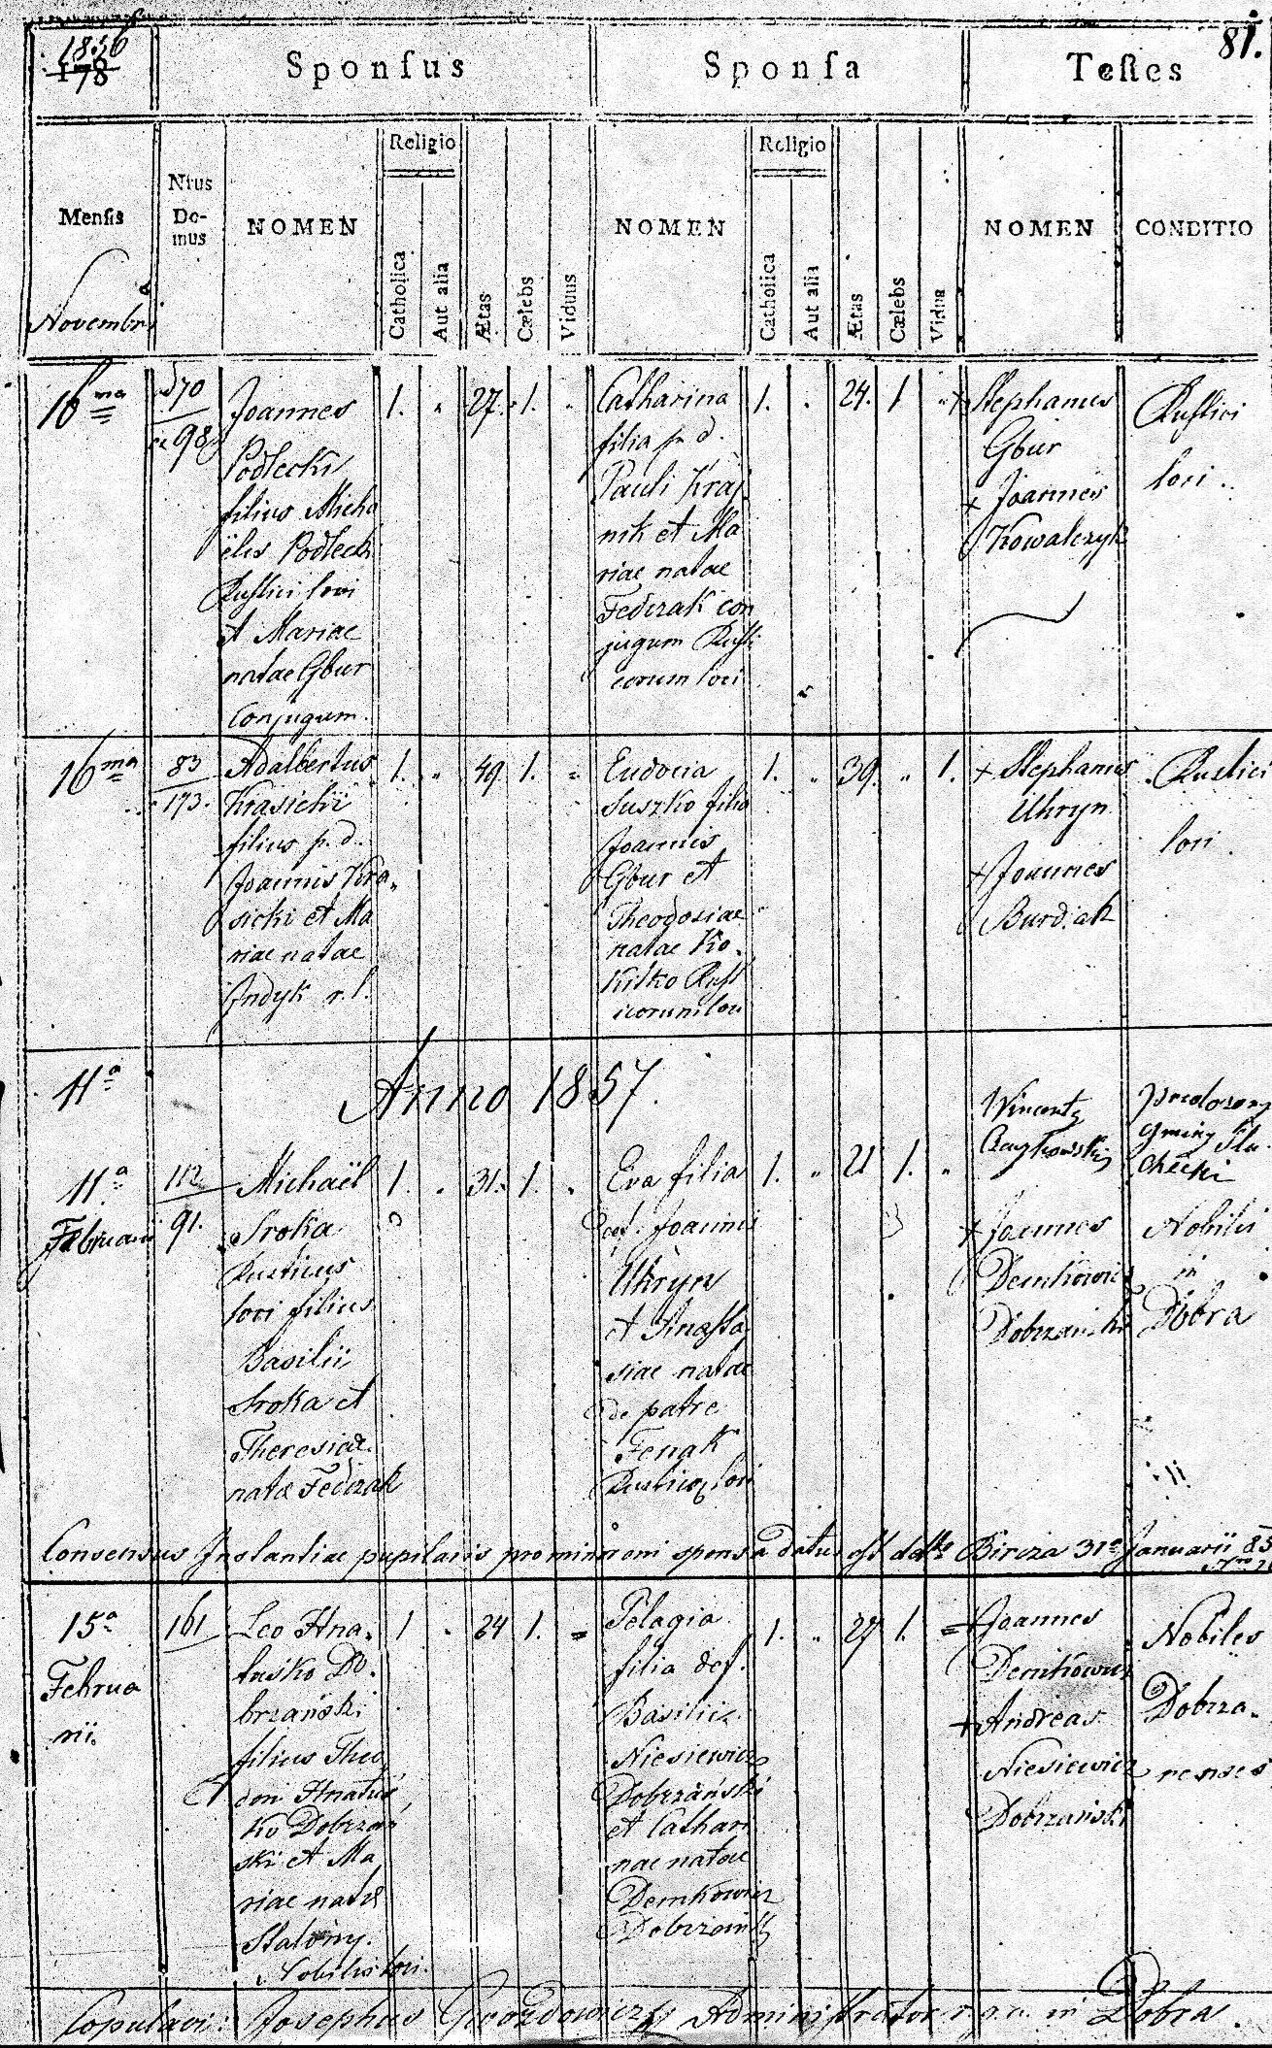 1856
178
81.
Sponſus
Sponſa
Teſtes
Menſis
Nrus Domus
NOMEN
Religio
Catholica
Aut alia
Ætas
Cælebs
Viduus
NOMEN
Religio
Catholica
Aut alia
Ætas
Cælebs
Vidua
NOMEN
CONDITIO
Novembri
16ma
98
Joannes
Podlecki
filius Micha
ëlis Podlecki
Rustici loci
et Mariae
natae Gbur
Conjugum.
1. 27. 1.
Catharina
filia p. d.
Pauli Kraj
nik et Ma
riae natae
Fedczak con
jugum Rusti
corum loci
1. 24. 1
+ Stephanus
Gbur
+ Joannes
Kowalczyk
Rustici
loci.
16ma
83
173.
Adalbertus
Krasicki
filius p. d.
Joannis Kra
sicki et Ma
riae natae
Indyk r. l.
1. 49. 1.
Eudocia
Suszko filia
Joannis
Gbur et
Theodosiae
natae Ko
kitko Rust
icorum loci
1. 39. 1.
+ Stephanus
Uhryn
+ Joannes
Burdiak
Rustici
loci.
11a
Anno 1857.
11a
Februarii
112
91.
Michaël
Sroka
Rusticus
loci filius
Basilii
Sroka et
Theresiae
natæ Fedczak
1. 31. 1.
Eva filia
def. Joannis
Uhryn
et Anasta
siae natae
de patre
Fenak
loci
1. 21 1.
Wincenty
gminy
+ Joannes
Demkowicz
Dobrzański
Nobiles
in
Dobra
Consensus Instantiae pupilaris pro minorenni sponsa datus est ddto Bircza 31a Januarii
15a
Februa
rii.
161
Leo Hna
tuśko Do
brzański
filius Theo
dori Hnatuś
ko Dobrzań
ski et Ma
riae natæ
Nobilis loci.
1 24 1.
Pelagia
filia def.
Basilii
Niesiewicz
Dobrzański
et Cathari
nae natae
Demkowicz
1. 27 1.
+ Joannes
Demkowicz
+ Andreas
Niesiewicz
Dobrzański
Nobiles
Dobrza
nenses
Copulavi: Josephus Administrator r.g.c. in Dobra.